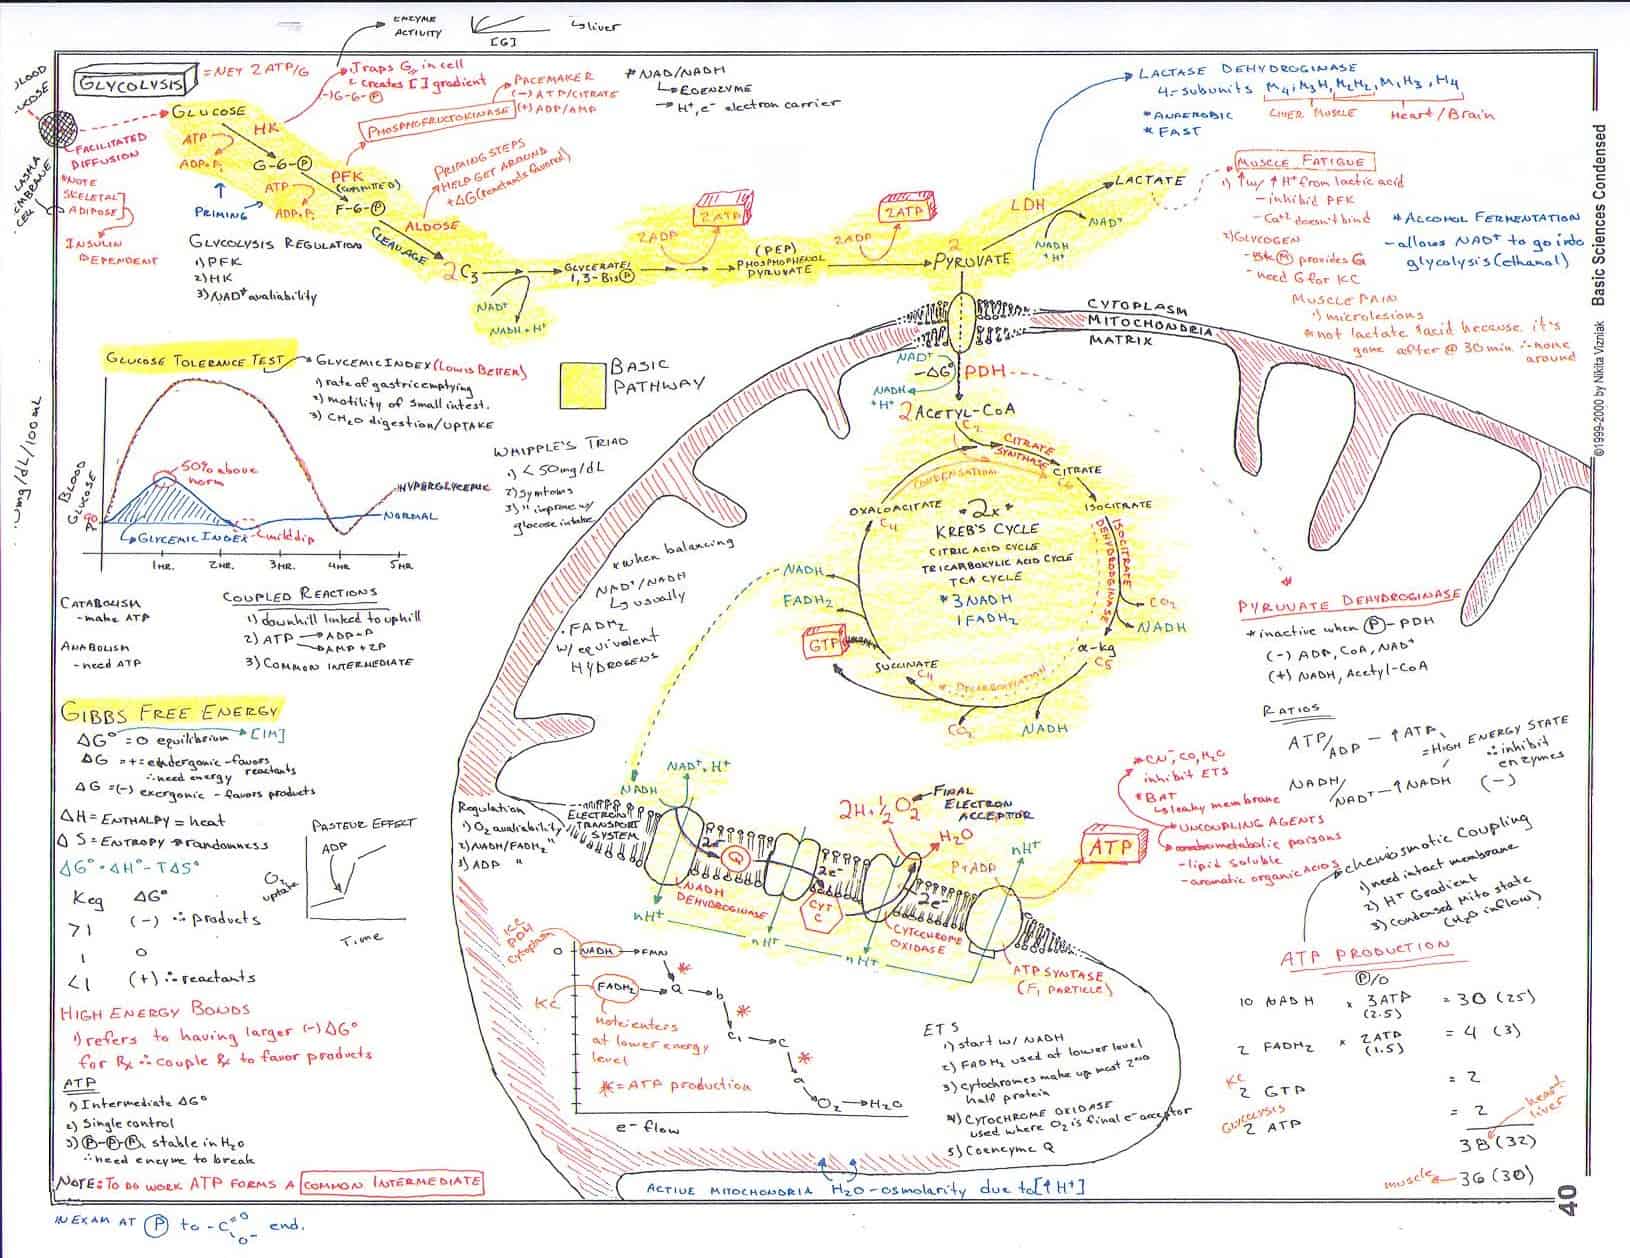 ENZYME
ACTIVITY
[G]
↳liver
BLOOD
PLASMA
MEMBRANE
CELL
GLYCOLYSIS
= NET 2 ATP/G
Traps G in cell
creates [ ] gradient
(-) G-6-P
PACEMAKER
(-) ATP/CITRATE
(+) ADP/AMP
PHOSPHOFRUCTOKINASE
* NAD/NADH
↳COENZYME
→ H⁺, e⁻ electron carrier
LACTASE DEHYDROGINASE
4-subunits M₄, M₃H, M₂H₂, M₁H₃, H₄
LIVER MUSCLE
Heart/Brain
* ANAEROBIC
* FAST
GLUCOSE
HK
ATP
ADP+Pi
G-6-P
FACILITATED
DIFFUSION
*NOTE
SKELETAL
ADIPOSE
INSULIN
DEPENDENT
PRIMING
ATP
ADP+Pi
PFK
(COMMITTED)
F-6-P
ALDOSE
CLEAVAGE
PRIMING STEPS
HELP GET AROUND
+ΔG (reactants favored)
GLYCOLYSIS REGULATION
1) PFK
2) HK
3) NAD⁺ avaliability
2C₃
NAD⁺
NADH + H⁺
GLYCERATE
1,3-Bis P
2ADP
2ATP
(PEP)
PHOSPHOPHENOL
PYRUVATE
2ADP
2ATP
2
PYRUVATE
LDH
NADH
+ H⁺
NAD⁺
LACTATE
MUSCLE FATIGUE
1) ↑w/ ↑ H⁺ from lactic acid
- inhibid PFK
- Ca⁺² doesn't bind
2) GLYCOGEN
- Bk M provides G
- need G for KC
MUSCLE PAIN
1) microlesions
* not lactate acid because it's
gone after @ 30 min ∴ none
around
* ALCOHOL FERMENTATION
- allows NAD⁺ to go into
glycolysis (ethanol)
©1999-2000 by Nikita Vizniak Basic Sciences Condensed
CYTOPLASM
MITOCHONDRIA
MATRIX
NAD⁺
-ΔG°
NADH
+H⁺
PDH
2 ACETYL-CoA
C₂
GLUCOSE TOLERANCE TEST
GLYCEMIC INDEX (Low is Better)
1) rate of gastric emptying
2) motility of small intest.
3) CH₂O digestion/UPTAKE
BASIC
PATHWAY
mg/dL/100mL
BLOOD
GLUCOSE
90
50% above
norm
HYPERGLYCEMIC
NORMAL
↳GLYCEMIC INDEX
mild dip
1HR. 2HR. 3HR. 4HR 5HR
WHIPPLE'S TRIAD
1) < 50mg/dL
2) Symtoms
3) " improve w/
glocose intake
CITRATE
SYNTHASE
CONDENSATION
CITRATE
C₆
ISOCITRATE
ISOCITRATE
DEHYDROGINASE
OXALOACITATE
C₄
*2x*
KREB'S CYCLE
CITRIC ACID CYCLE
TRICARBOXYLIC ACID CYCLE
TCA CYCLE
* 3 NADH
1 FADH₂
NADH
FADH₂
GTP
CO₂
NADH
α-kg
C₅
SUCCINATE
C₄
DECARBOXYLATION
CO₂
NADH
* when balancing
NAD⁺/NADH
↳ usually
· FADH₂
w/ equivalent
HYDROGENS
CATABOLISM
- make ATP
ANABOLISM
- need ATP
COUPLED REACTIONS
1) downhill linked to uphill
2) ATP → ADP+P
→ AMP + 2P
3) COMMON INTERMEDIATE
PYRUVATE DEHYDROGINASE
* inactive when P - PDH
(-) ADP, CoA, NAD⁺
(+) NADH, Acetyl-CoA
RATIOS
ATP/ADP - ↑ ATP
= HIGH ENERGY STATE
∴ inhibit
enzymes
(-)
NADH/NAD⁺ - ↑ NADH
GIBBS FREE ENERGY
ΔG° = 0 equilibrium → [1M]
ΔG = + = endergonic - favors
∴ need energy reactants
ΔG = (-) exergonic - favors products
ΔH = ENTHALPY = heat
ΔS = ENTROPY → randomness
ΔG° = ΔH° - TΔS°
Keq ΔG°
>1 (-) ∴ products
1 0
<1 (+) ∴ reactants
PASTEUR EFFECT
ADP
O₂
uptake
Time
HIGH ENERGY BONDS
1) refers to having larger (-) ΔG°
for Rx ∴ couple Rx to favor products
ATP
1) Intermediate ΔG°
2) Single control
3) P-P-P, stable in H₂O
∴ need enzyme to break
NOTE: TO DO WORK ATP FORMS A COMMON INTERMEDIATE
IN EXAM AT P to -C=O O⁻ end.
Regulation
1) O₂ avaliability
2) NADH/FADH₂ "
3) ADP "
ELECTRON
TRANSPORT
SYSTEM
NADH
NAD⁺, H⁺
2e⁻
Q
NADH
DEHYDROGINASE
nH⁺
2e⁻
CYT
C
nH⁺
2H + ½ O₂
FINAL
ELECTRON
ACCEPTOR
H₂O
CYTOCHROME
OXIDASE
2e⁻
nH⁺
P+ADP
nH⁺
ATP
ATP SYNTASE
(F₁ PARTICLE)
* CN⁻, CO, H₂O
inhibit ETS
* BAT
↳ leaky membrane
* UNCOUPLING AGENTS
- lipid soluble
- aromatic organic acids
* chemiosmotic Coupling
1) need intact membrane
2) H⁺ Gradient
3) Condensed Mito state
(H₂O inflow)
KC
PDH
cytoplasm
0
NADH → FMN
KC
FADH₂ → Q → b
C₁ → C
a
O₂ → H₂O
note: enters
at lower energy
level
* = ATP production
e⁻ flow
ETS
1) start w/ NADH
2) FADH₂ used at lower level
3) cytochromes make up most 2nd
half protein
4) CYTOCHROME OXIDASE
used where O₂ is final e⁻ acceptor
5) Coenzyme Q
ATP PRODUCTION
P/O
10 NADH × 3ATP (2.5) = 30 (25)
2 FADH₂ × 2ATP (1.5) = 4 (3)
KC
2 GTP = 2
GLYCOLYSIS
2 ATP = 2
heart
liver
38 (32)
muscle 36 (30)
ACTIVE MITOCHONDRIA H₂O-osmolarity due to [↑H⁺]
40